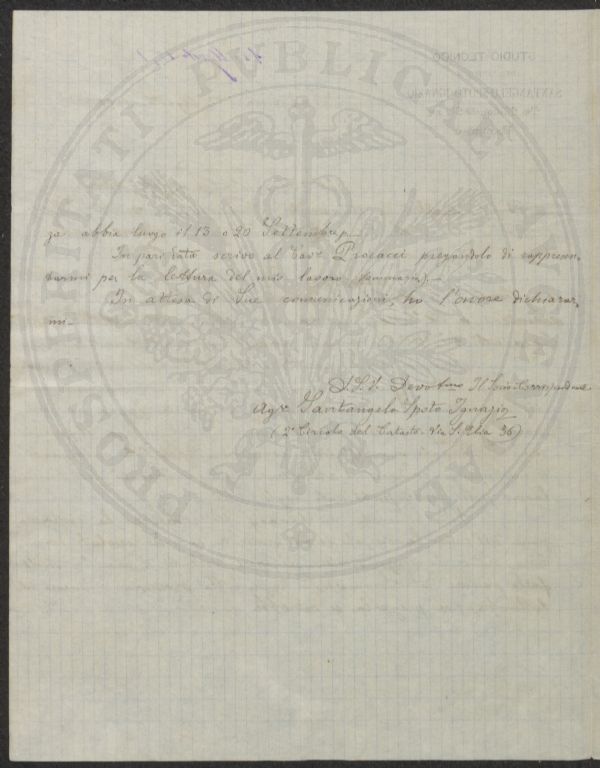 PROSPERITATI PUBLICAE AUGENDAE
STUDIO TECNICO
SANTANGELO SPOTO IGNAZIO
za abbia luogo il 13 o 20 Settembre p.
In pari data scrivo al Cav. Procacci pregandolo di rappresen,
tarmi per la lettura del mio lavoro (sommario).
In attesa di Sue comunicazioni, ho l'onore dichiarar,
mi
D. S. V. Devotmo Il Socio Corrispondente
Santangelo Spoto Ignazio
(2° Circolo del Catasto Via S. 36)